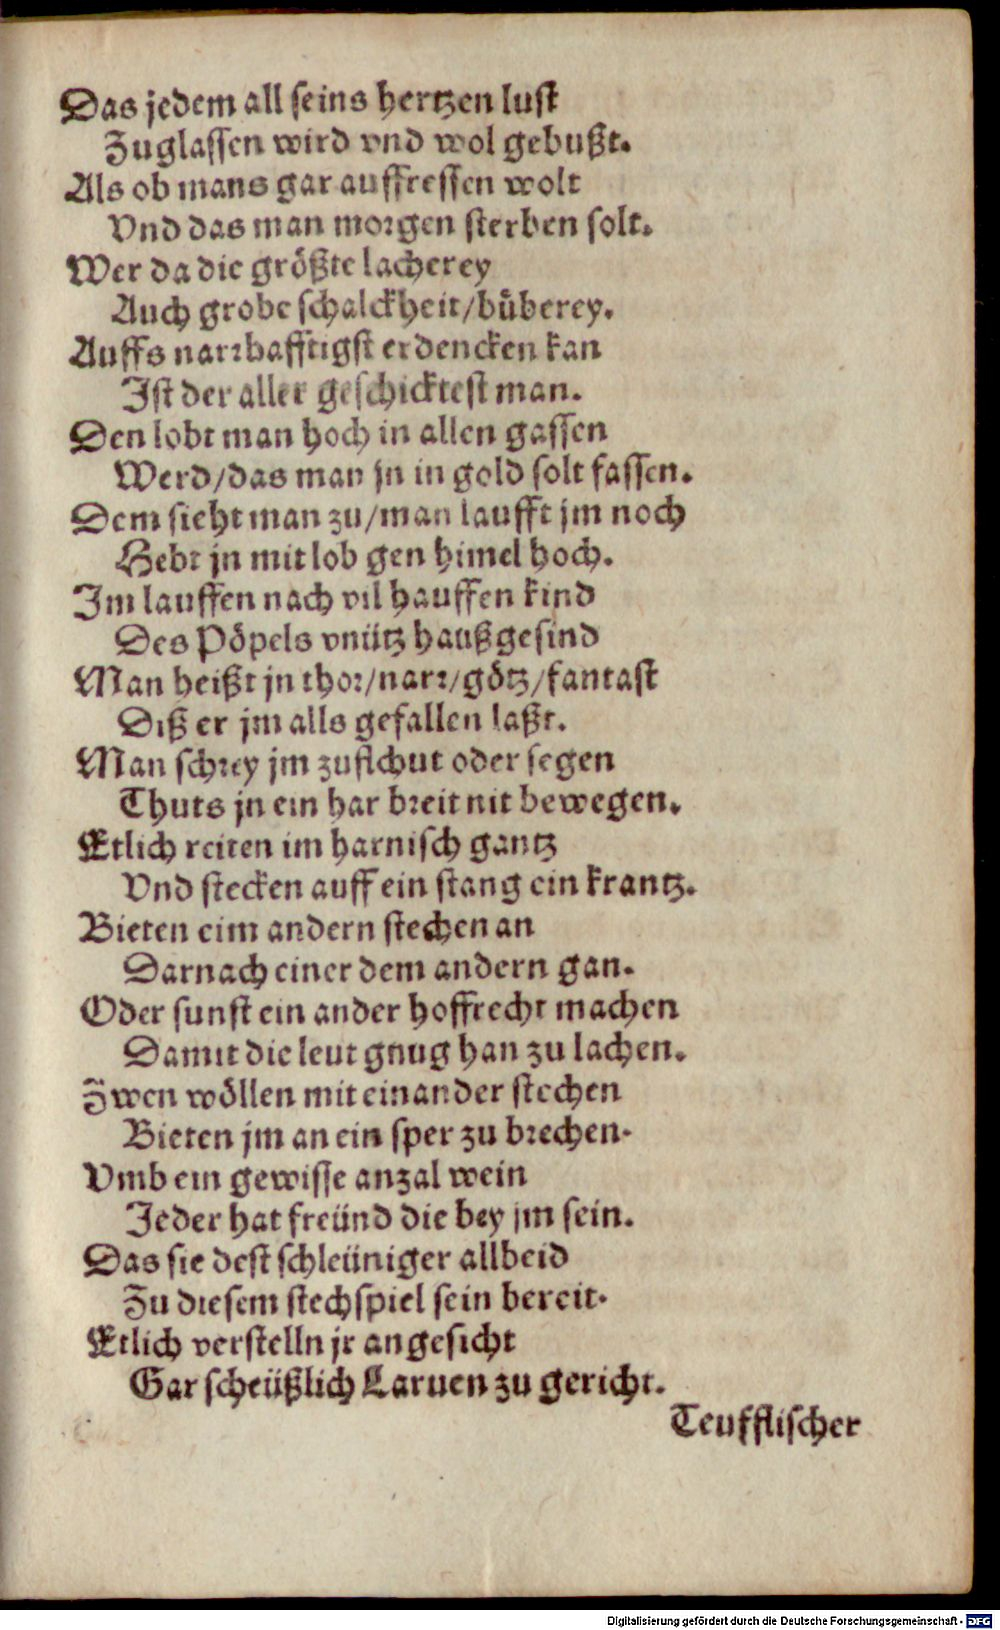 Das jedem all seins hertzen lust
Zuglassen wird vnd wol gebußt.
Als ob mans gar auffressen wolt
Vnd das man morgen sterben solt.
Wer da die größte lacherey
Auch grobe schalckheit/bůberey.
Auffs narrhafftigst erdencken kan
Ist der aller geschicktest man.
Den lobt man hoch in allen gassen
Werd/das man jn in gold solt fassen.
Dem sieht man zu/man laufft jm noch
Hebt jn mit lob gen himel hoch.
Im lauffen nach vil hauffen kind
Des Pöpels vnütz haußgesind
Man heißt jn thor/narr/götz/fantast
Diß er jm alls gefallen laßt.
Man schrey jm zuflchut oder segen
Thuts jn ein har breit nit bewegen.
Etlich reiten im harnisch gantz
Vnd stecken auff ein stang ein krantz.
Bieten eim andern stechen an
Darnach einer dem andern gan.
Oder sunst ein ander hoffrecht machen
Damit die leut gnug han zu lachen.
Zwen wöllen mit einander stechen
Bieten jm an ein sper zu brechen.
Vmb ein gewisse anzal wein
Jeder hat freünd die bey jm sein.
Das sie dest schleüniger allbeid
Zu diesem stechspiel sein bereit.
Etlich verstelln jr angesicht
Gar scheüßlich Laruen zu gericht.
Teufflischer
Digitalisierung gefördert durch die Deutsche Forschungsgemeinschaft - DFG